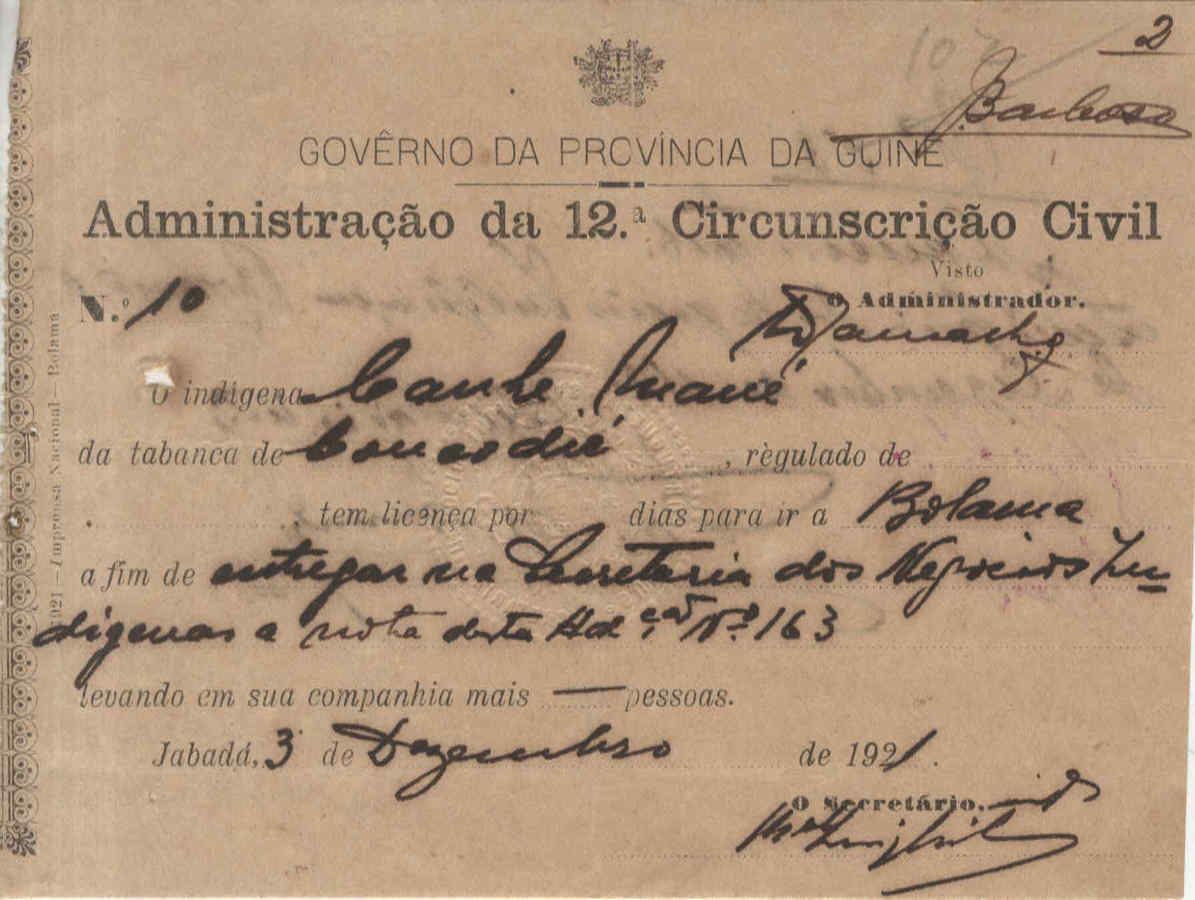 2
107
Barbosa
GOVÊRNO DA PROVÍNCIA DA GUINÉ
Administração da 12.ª Circunscrição Civil
Visto
N.º 10
O Administrador.
O indígena Mané
da tabanca de , règulado de
, tem licença por dias para ir a Bolama
a fim de entregar na Secretaria dos Negocios In-
digenas a nota desta Ad.ção Nº 163
levando em sua companhia mais — pessoas.
Jabadá, 3 de Dezembro de 1921.
O Secretário,
1921—Imprensa Nacional—Bolama